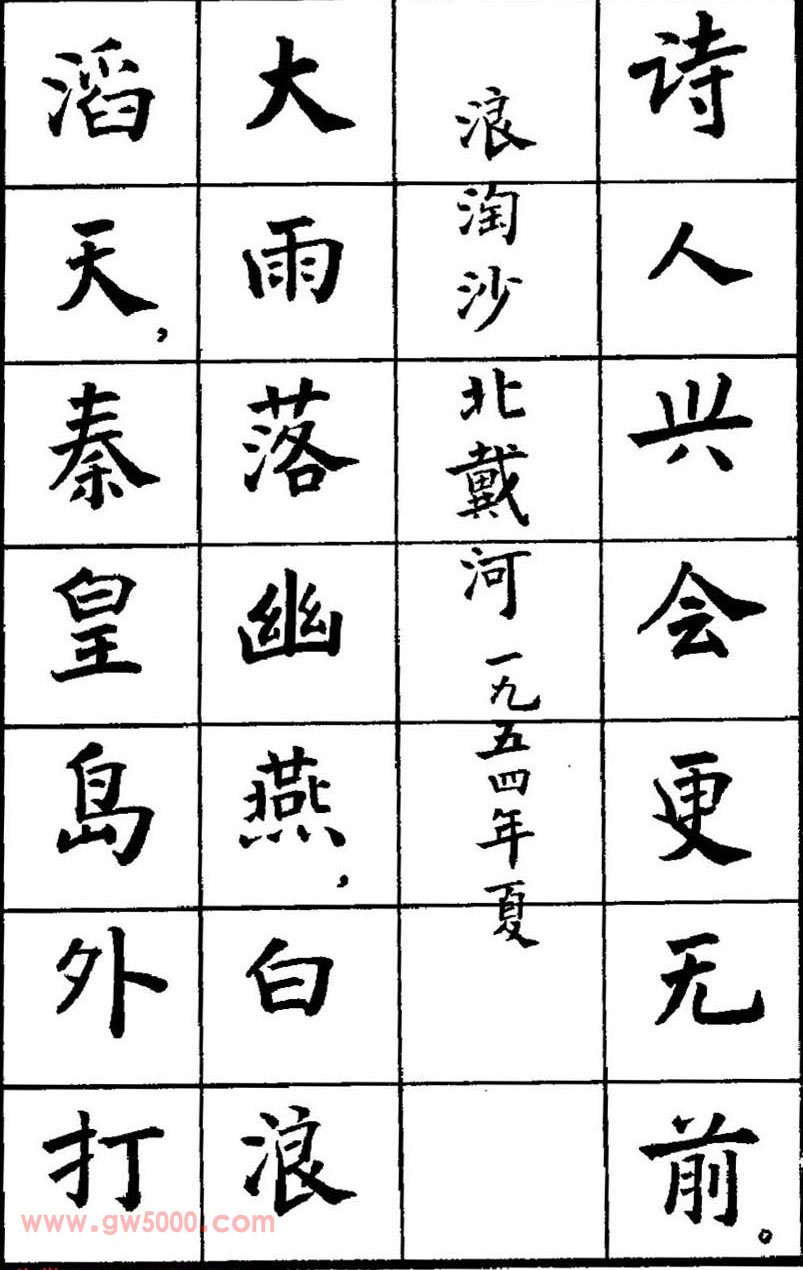 诗人兴会更无前。
浪淘沙 北戴河 一九五四年夏
大雨落幽燕，白浪
滔天，秦皇岛外打
www.gw5000.com